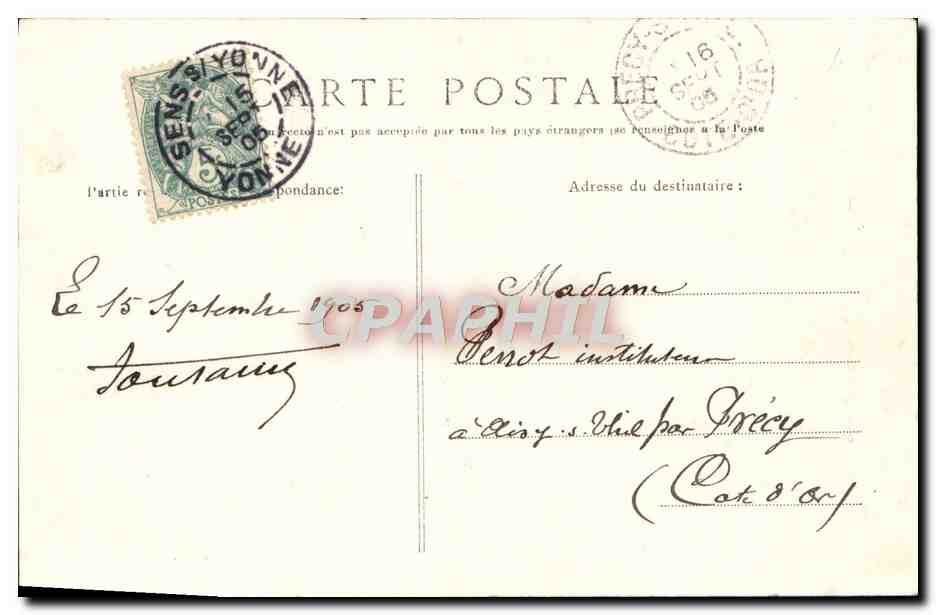 CARTE POSTALE
recto n'est pas acceptée par tous les pays étrangers (se renseigner à la Poste
SENS-S/YONNE
15
SEPT
05
YONNE
5
POSTES
16
SEPT
05
COTE-D'OR
Partie pondance:
Adresse du destinataire :
Le 15 Septembre 1905
Toutain
CPAPHIL
Madame
Perrot instituteur
à Aisy s. Thil par Précy
(Cote d'Or)